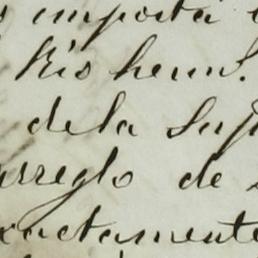 importa
Rio herm.
de la Sup
arreglo de
xactamente